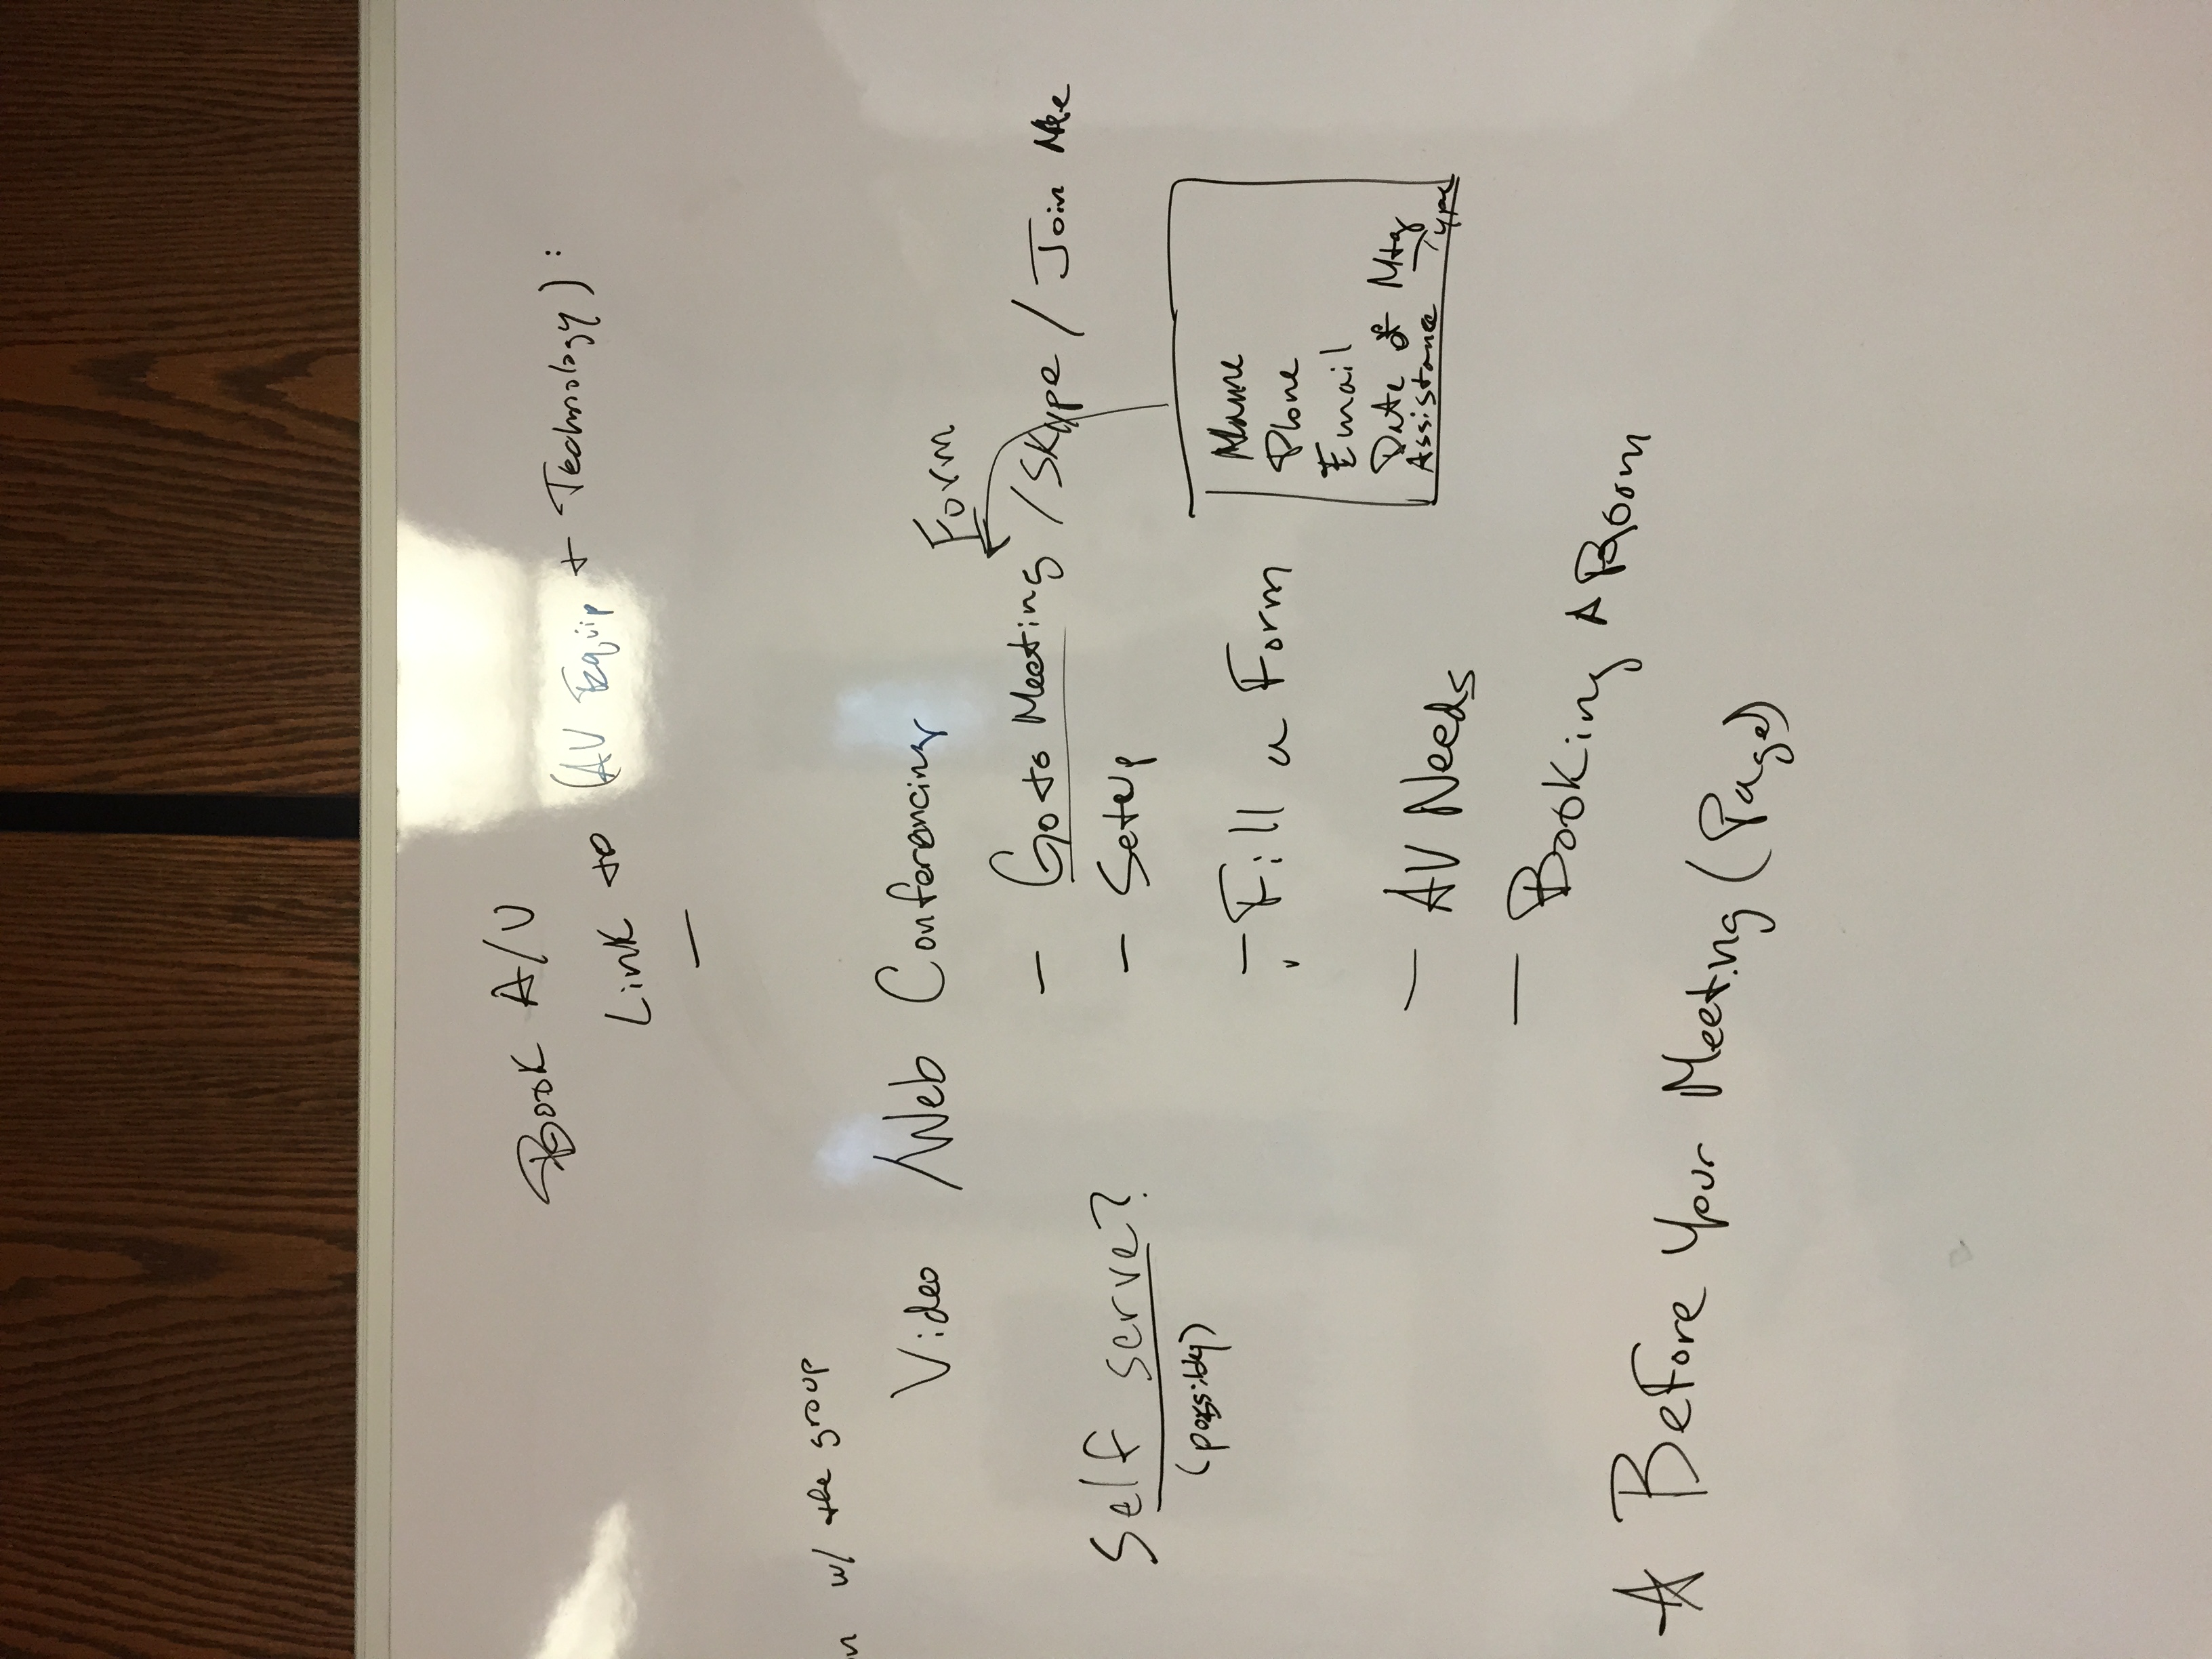 Book A/V
Link to (AV Equip + Technology):
—
w/ the group
Video /Web Conferencing
Form
- Go to Meeting /Skype / Join Me
- Setup
Self serve?
(possibly)
- Fill a Form
Name
Phone
Email
Date of Mtg
Assistance Type
- AV Needs
- Booking A Room
☆ Before Your Meeting (Page)